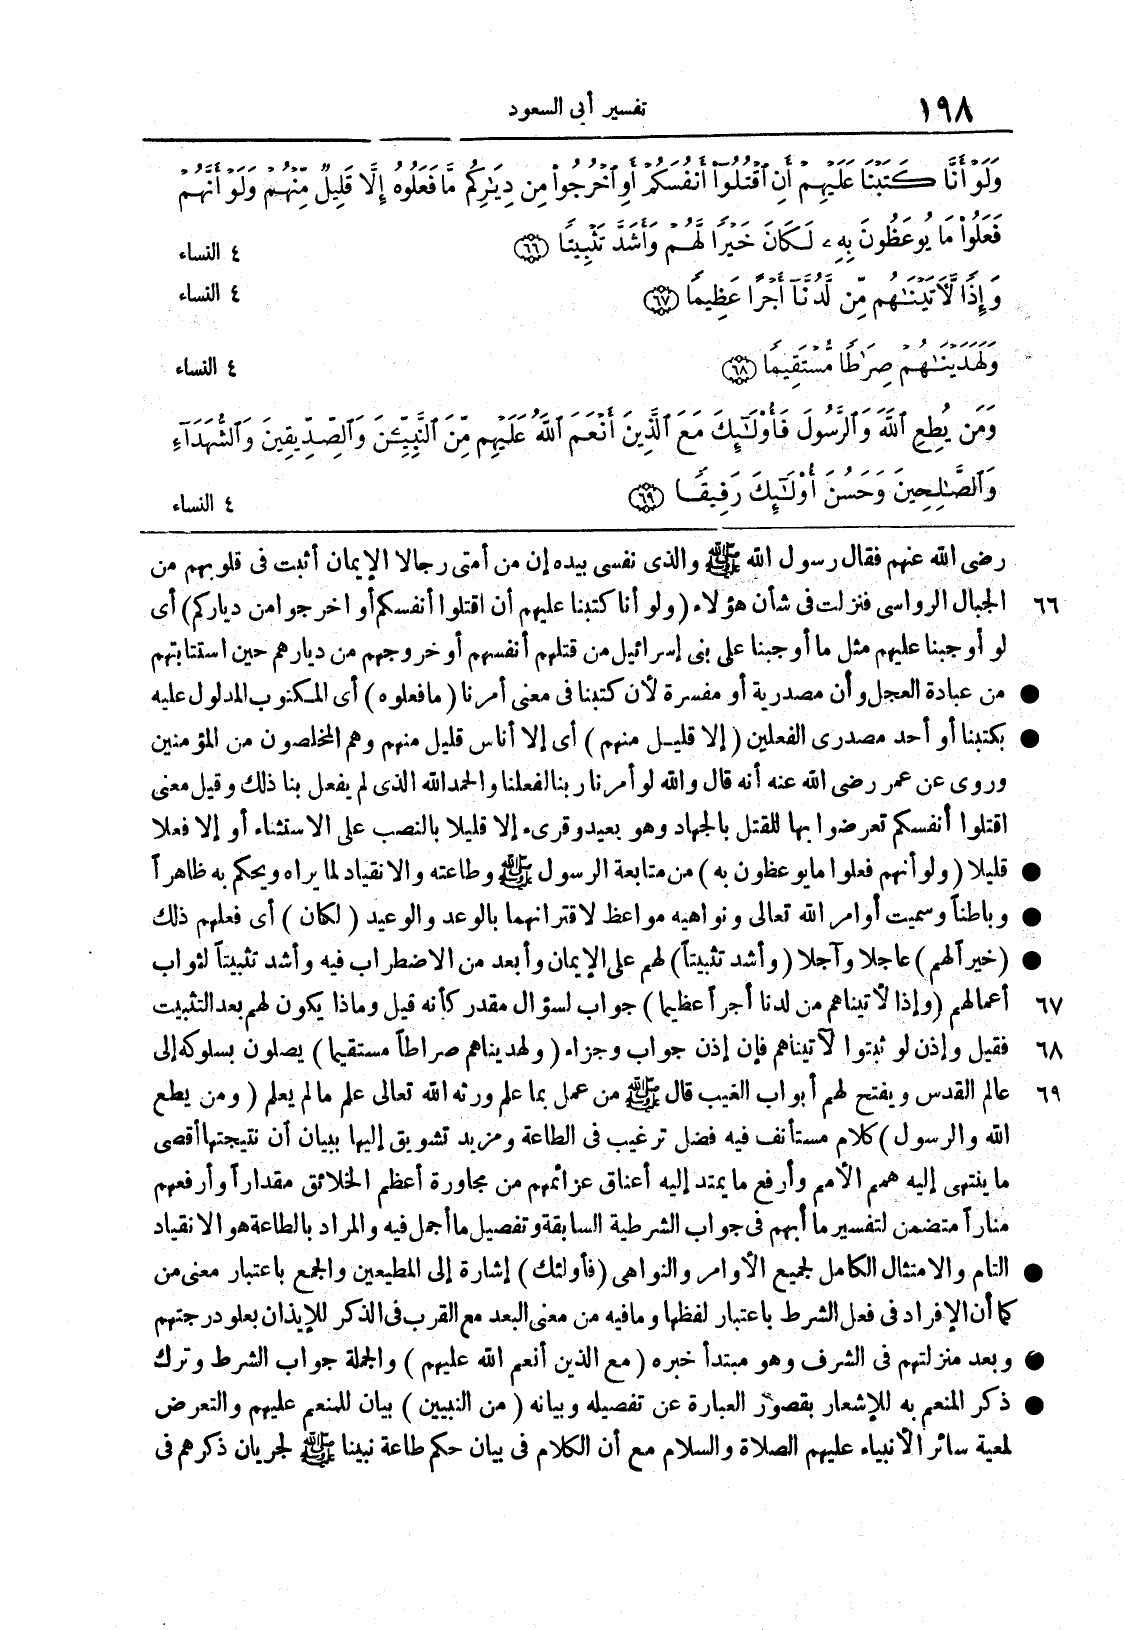 ١٩٨
تفسير أبى السعود
وَلَوْ أَنَّا كَتَبْنَا عَلَيْهِمْ أَنِ ٱقْتُلُوٓا۟ أَنفُسَكُمْ أَوِ ٱخْرُجُوا۟ مِن دِيَٰرِكُم مَّا فَعَلُوهُ إِلَّا قَلِيلٌ مِّنْهُمْ وَلَوْ أَنَّهُمْ
فَعَلُوا۟ مَا يُوعَظُونَ بِهِۦ لَكَانَ خَيْرًا لَّهُمْ وَأَشَدَّ تَثْبِيتًا ٦٦ ٤ النساء
وَإِذًا لَّآتَيْنَٰهُم مِّن لَّدُنَّآ أَجْرًا عَظِيمًا ٦٧ ٤ النساء
وَلَهَدَيْنَٰهُمْ صِرَٰطًا مُّسْتَقِيمًا ٦٨ ٤ النساء
وَمَن يُطِعِ ٱللَّهَ وَٱلرَّسُولَ فَأُو۟لَٰٓئِكَ مَعَ ٱلَّذِينَ أَنْعَمَ ٱللَّهُ عَلَيْهِم مِّنَ ٱلنَّبِيِّـۧنَ وَٱلصِّدِّيقِينَ وَٱلشُّهَدَآءِ
وَٱلصَّٰلِحِينَ وَحَسُنَ أُو۟لَٰٓئِكَ رَفِيقًا ٦٩ ٤ النساء
رضى الله عنهم فقال رسول الله ﷺ والذى نفسى بيده إن من أمتى رجالا الإيمان أثبت فى قلوبهم من
٦٦ الجبال الرواسى فنزلت فى شأن هؤلاء (ولو أنا كتبنا عليهم أن اقتلوا أنفسكم أو اخرجوا من دياركم) أى
لو أوجبنا عليهم مثل ما أوجبنا على بنى إسرائيل من قتلهم أنفسهم أو خروجهم من ديارهم حين استتابتهم
● من عبادة العجل وأن مصدرية أو مفسرة لأن كتبنا فى معنى أمرنا (ما فعلوه) أى المكتوب المدلول عليه
● بكتبنا أو أحد مصدرى الفعلين (إلا قليل منهم) أى إلا أناس قليل منهم وهم المخلصون من المؤمنين
وروى عن عمر رضى الله عنه أنه قال والله لو أمرنا ربنا لفعلنا والحمد الله الذى لم يفعل بنا ذلك وقيل معنى
اقتلوا أنفسكم تعرضوا بها للقتل بالجهاد وهو بعيد وقرىء إلا قليلا بالنصب على الاستثناء أو إلا فعلا
● قليلا (ولو أنهم فعلوا ما يوعظون به) من متابعة الرسول ﷺ وطاعته والانقياد لما يراه ويحكم به ظاهراً
● وباطناً وسميت أوامر الله تعالى ونواهيه مواعظ لاقترانهما بالوعد والوعيد (لكان) أى فعلهم ذلك
● (خيراً لهم) عاجلا وآجلا (وأشد تثبيتاً) لهم على الإيمان وأبعد من الاضطراب فيه وأشد تثبيتاً لثواب
٦٧ أعمالهم (وإذا لآتيناهم من لدنا أجراً عظيما) جواب لسؤال مقدر كأنه قيل وماذا يكون لهم بعد التثبيت
٦٨ فقيل وإذن لو ثبتوا لآتيناهم فإن إذن جواب وجزاء (ولهديناهم صراطاً مستقيما) يصلون بسلوكه إلى
٦٩ عالم القدس ويفتح لهم أبواب الغيب قال ﷺ من عمل بما علم ورثه الله تعالى علم مالم يعلم (ومن يطع
الله والرسول) كلام مستأنف فيه فضل ترغيب فى الطاعة ومزيد تشويق إليها ببيان أن نتيجتها أقصى
ما ينتهى إليه همم الأمم وأرفع ما يمتد إليه أعناق عزائمهم من مجاورة أعظم الخلائق مقداراً وأرفعهم
مناراً متضمن لتفسير ما أبهم فى جواب الشرطية السابقة وتفصيل ما أجمل فيه والمراد بالطاعة هو الانقياد
● التام والامتثال الكامل لجميع الأوامر والنواهى (فأولئك) إشارة إلى المطيعين والجمع باعتبار معنى من
كما أن الإفراد فى فعل الشرط باعتبار لفظها وما فيه من معنى البعد مع القرب فى الذكر للإيذان بعلو درجتهم
● وبعد منزلتهم فى الشرف وهو مبتدأ خبره (مع الذين أنعم الله عليهم) والجملة جواب الشرط وترك
● ذكر المنعم به للإشعار بقصور العبارة عن تفصيله وبيانه (من النبيين) بيان للمنعم عليهم والتعرض
لمعية سائر الأنبياء عليهم الصلاة والسلام مع أن الكلام فى بيان حكم طاعة نبينا ﷺ لجريان ذكرهم فى